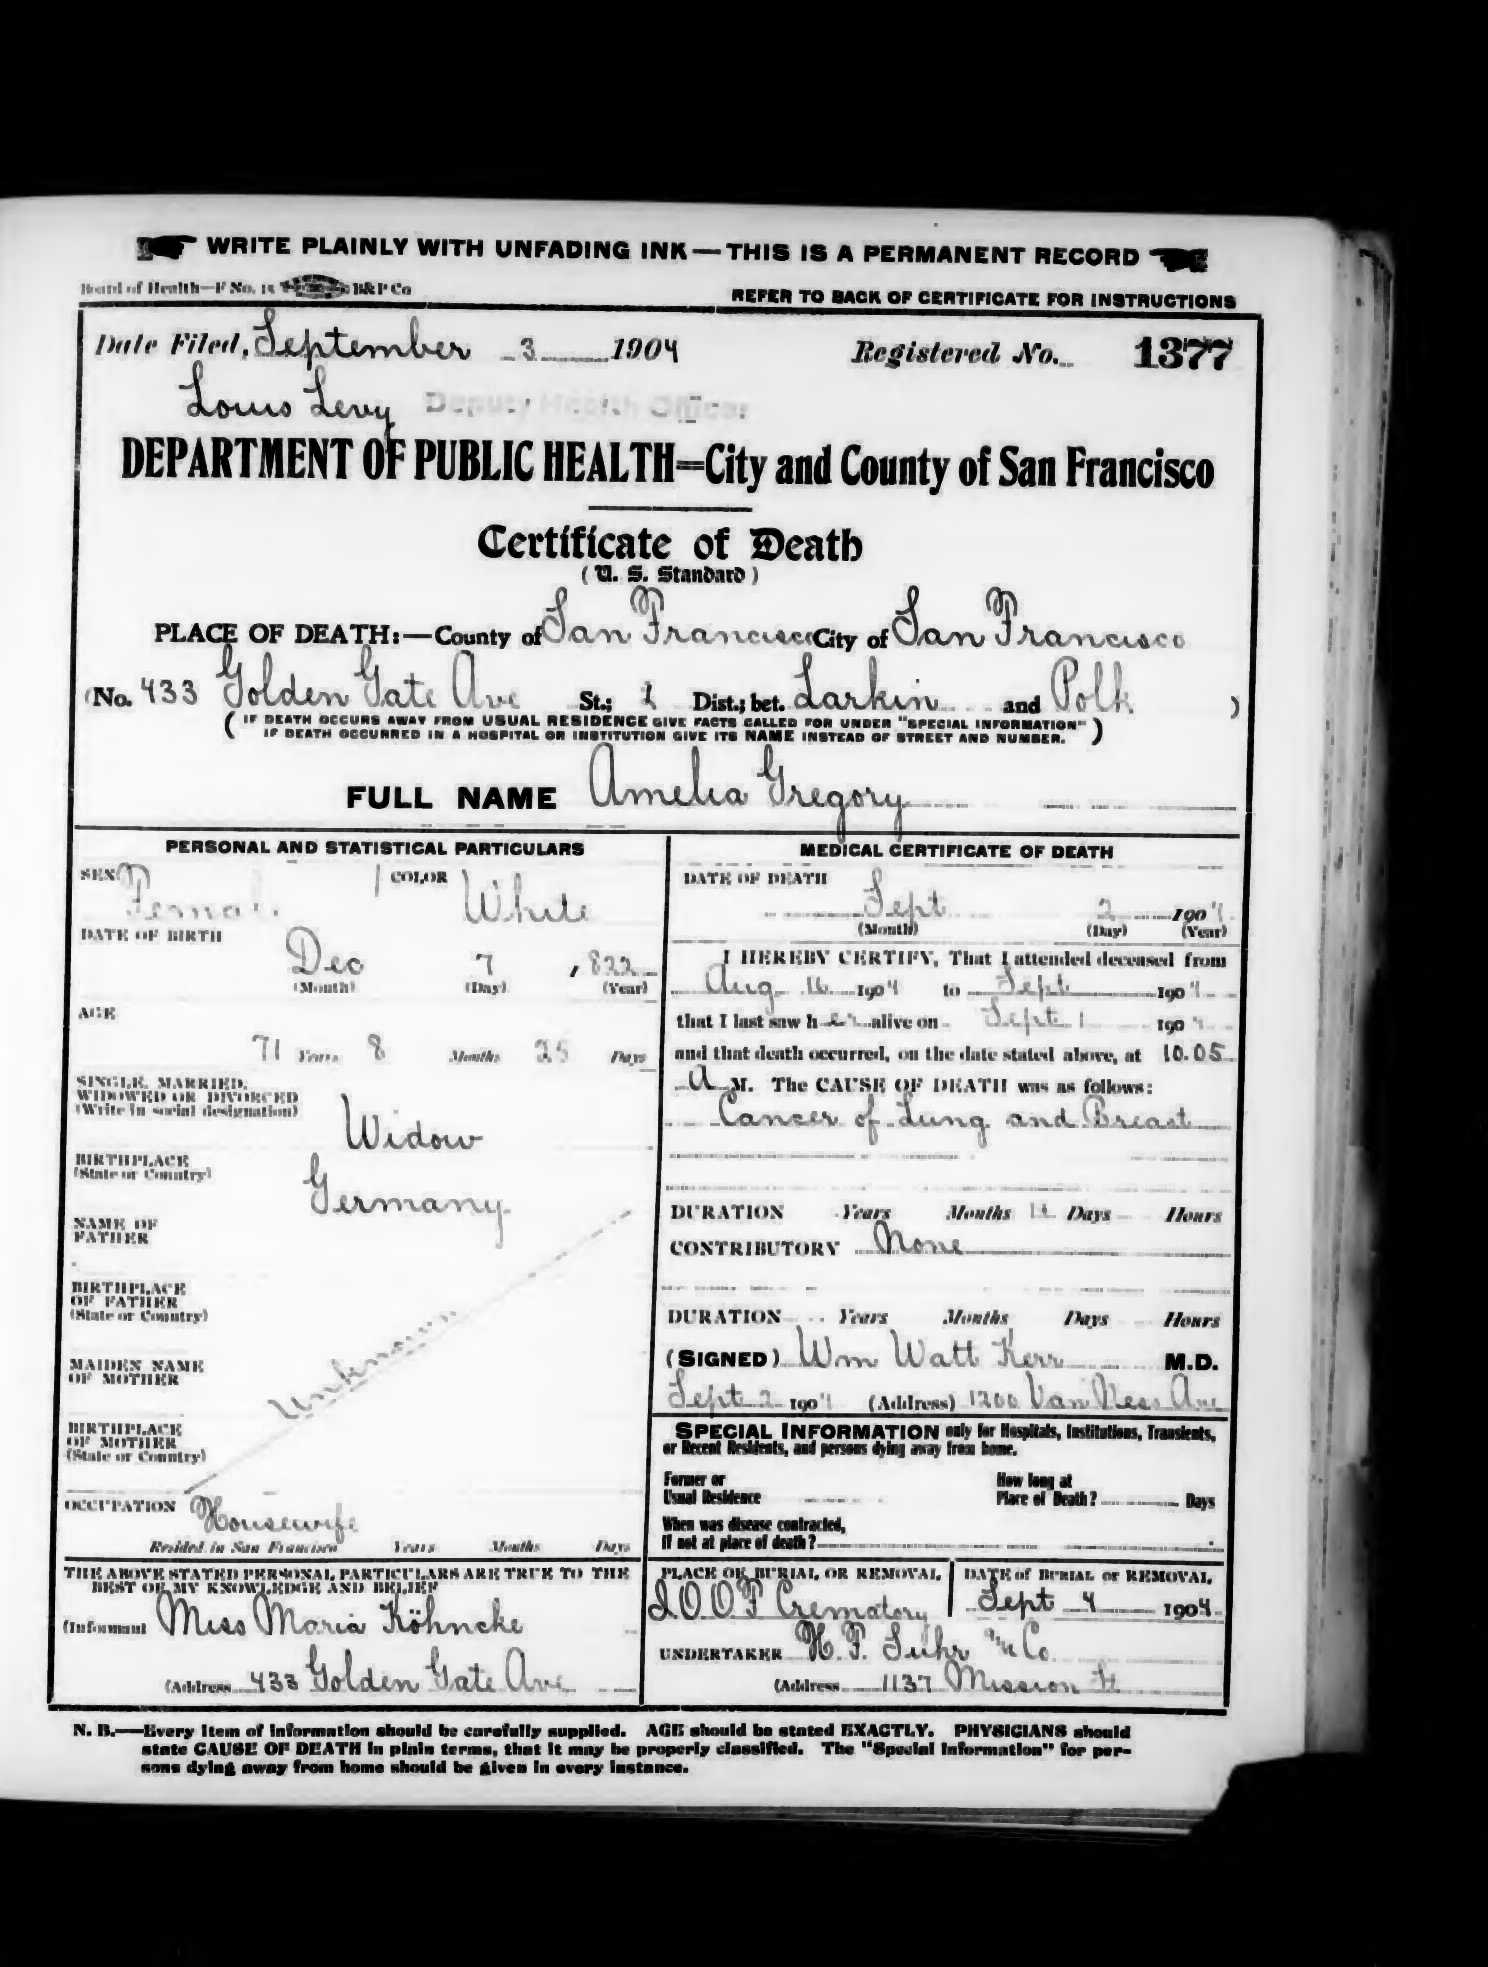 WRITE PLAINLY WITH UNFADING INK—THIS IS A PERMANENT RECORD
Board of Health—F No. 15 B&P Co
REFER TO BACK OF CERTIFICATE FOR INSTRUCTIONS
Date Filed, September 3 1904 Registered No. 1377
Louis Levy Deputy Health Officer
DEPARTMENT OF PUBLIC HEALTH=City and County of San Francisco
Certificate of Death
(U. S. Standard)
PLACE OF DEATH:—County of San Francisco City of San Francisco
(No. 433 Golden Gate Ave St.; Dist.; bet. Larkin and Polk )
(IF DEATH OCCURS AWAY FROM USUAL RESIDENCE GIVE FACTS CALLED FOR UNDER "SPECIAL INFORMATION"
IF DEATH OCCURRED IN A HOSPITAL OR INSTITUTION GIVE ITS NAME INSTEAD OF STREET AND NUMBER.)
FULL NAME Amelia Gregory
PERSONAL AND STATISTICAL PARTICULARS
SEX Female COLOR White
DATE OF BIRTH
Dec 7 , 822
(Month) (Day) (Year)
AGE
71 Years 8 Months 25 Days
SINGLE, MARRIED,
WIDOWED OR DIVORCED
(Write in social designation)
Widow
BIRTHPLACE
(State or Country)
Germany
NAME OF
FATHER
BIRTHPLACE
OF FATHER
(State or Country)
Unknown
MAIDEN NAME
OF MOTHER
BIRTHPLACE
OF MOTHER
(State or Country)
OCCUPATION Housewife
Resided in San Francisco Years Months Days
THE ABOVE STATED PERSONAL PARTICULARS ARE TRUE TO THE
BEST OF MY KNOWLEDGE AND BELIEF
(Informant Miss Maria Köhncke
(Address 433 Golden Gate Ave
MEDICAL CERTIFICATE OF DEATH
DATE OF DEATH
Sept 2 1904
(Month) (Day) (Year)
I HEREBY CERTIFY, That I attended deceased from
Aug 16 1904 to Sept 1904
that I last saw her alive on Sept 1 1904
and that death occurred, on the date stated above, at 10.05
A M. The CAUSE OF DEATH was as follows:
Cancer of Lung and Breast
DURATION Years Months Days Hours
CONTRIBUTORY None
DURATION Years Months Days Hours
(SIGNED) Wm Watt Kerr M.D.
Sept 2 1904 (Address) 1200 Van Ness Ave
SPECIAL INFORMATION only for Hospitals, Institutions, Transients,
or Recent Residents, and persons dying away from home.
Former or
Usual Residence
How long at
Place of Death? Days
When was disease contracted,
If not at place of death?
PLACE OF BURIAL OR REMOVAL DATE of BURIAL or REMOVAL
I O O F Crematory Sept 4 1904
UNDERTAKER H. F. Suhr & Co
(Address 1137 Mission St
N. B.—Every item of information should be carefully supplied. AGE should be stated EXACTLY. PHYSICIANS should
state CAUSE OF DEATH in plain terms, that it may be properly classified. The "Special Information" for per-
sons dying away from home should be given in every instance.